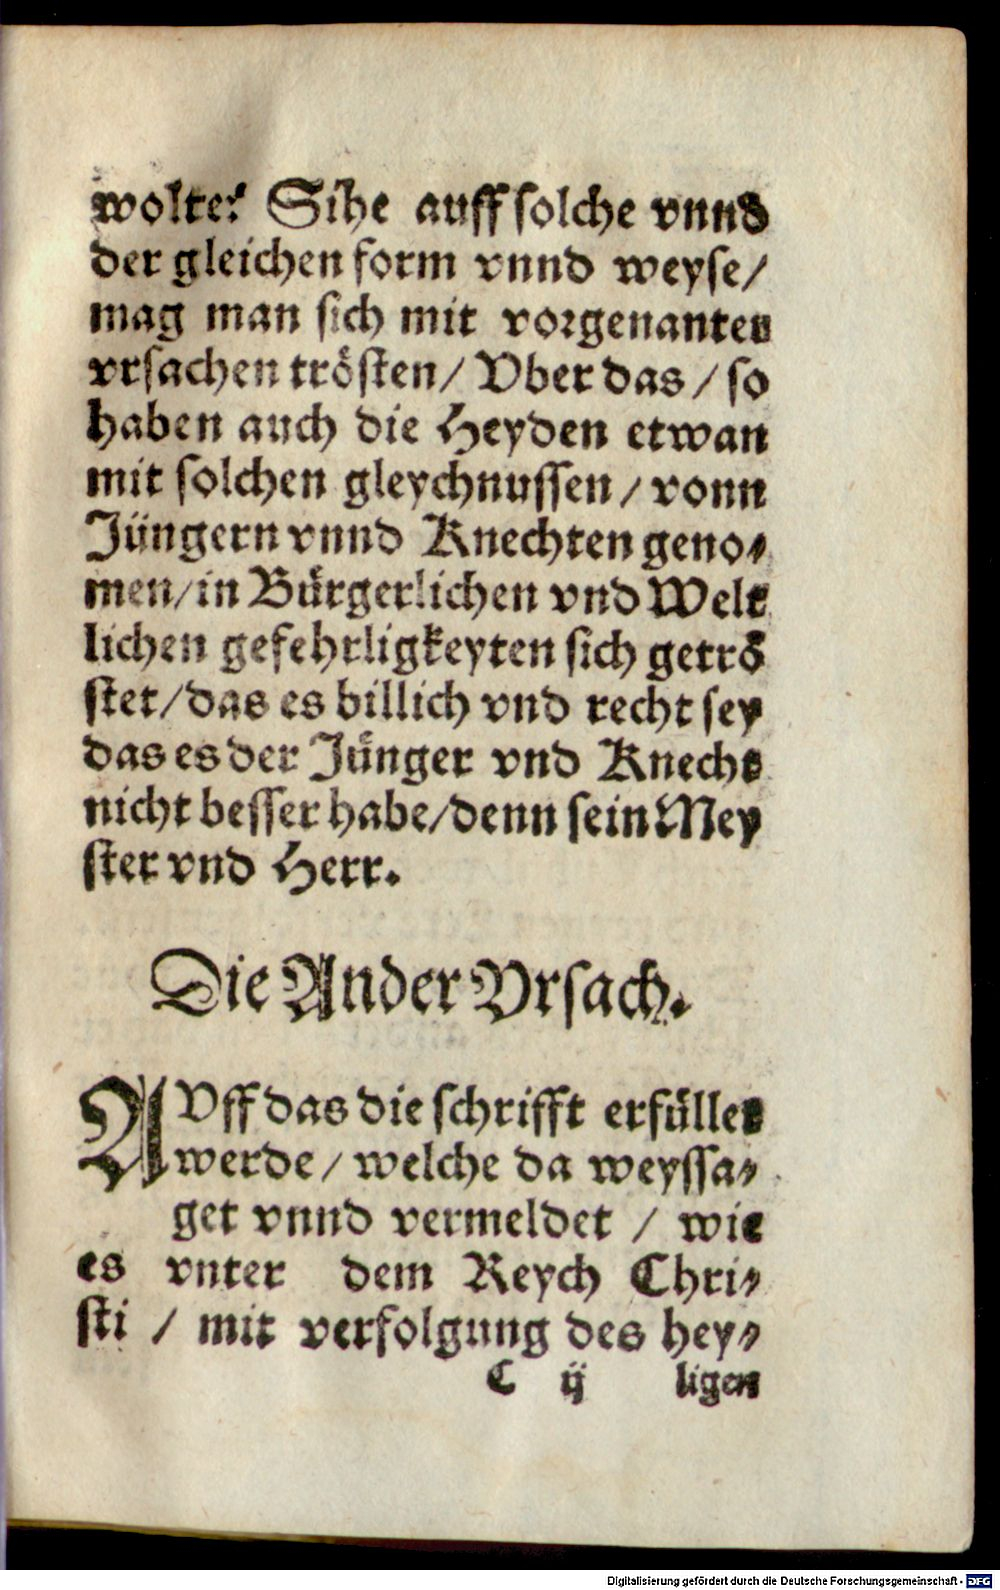 wolte? Sihe auff solche vnnd
der gleichen form vnnd weyse/
mag man sich mit vorgenanten
vrsachen trösten/ Vber das / so
haben auch die Heyden etwan
mit solchen gleychnussen / vonn
Jüngern vnnd Knechten geno⸗
men/in Bürgerlichen vnd Welt
lichen gefehrligkeyten sich getrö
stet/das es billich vnd recht sey
das es der Jünger vnd Knecht
nicht besser habe/denn sein Mey
ster vnd Herr.
Die Ander Vrsach.
AVff das die schrifft erfüllet
werde / welche da weyssa⸗
get vnnd vermeldet / wie
es vnter dem Reych Chri⸗
sti / mit verfolgung des hey⸗
C ij ligen
Digitalisierung gefördert durch die Deutsche Forschungsgemeinschaft - DFG